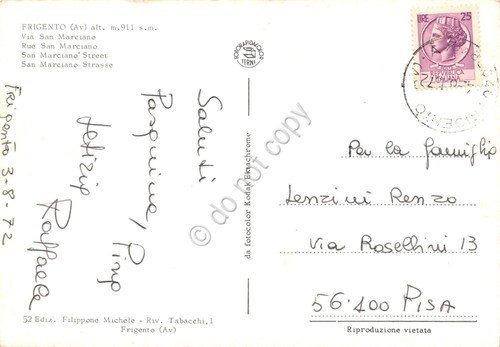 FRIGENTO (Av) alt. m. 911 s.m.
Via San Marciano
Rue San Marciano
San Marciano Street
San Marciano Strasse
FOTORAPIDACOLOR
TERNI
LIRE 25
Saluti
Pasquina, Pino
Letizia
Raffaele
Frigento 3-8-72
da fotocolor Kodak Ektachrome
do not copy
Per la famiglia
Lenzini Renzo
Via Rosellini 13
56.100 PISA
52 Ediz. Filippone Michele - Riv. Tabacchi, 1
Frigento (Av)
Riproduzione vietata